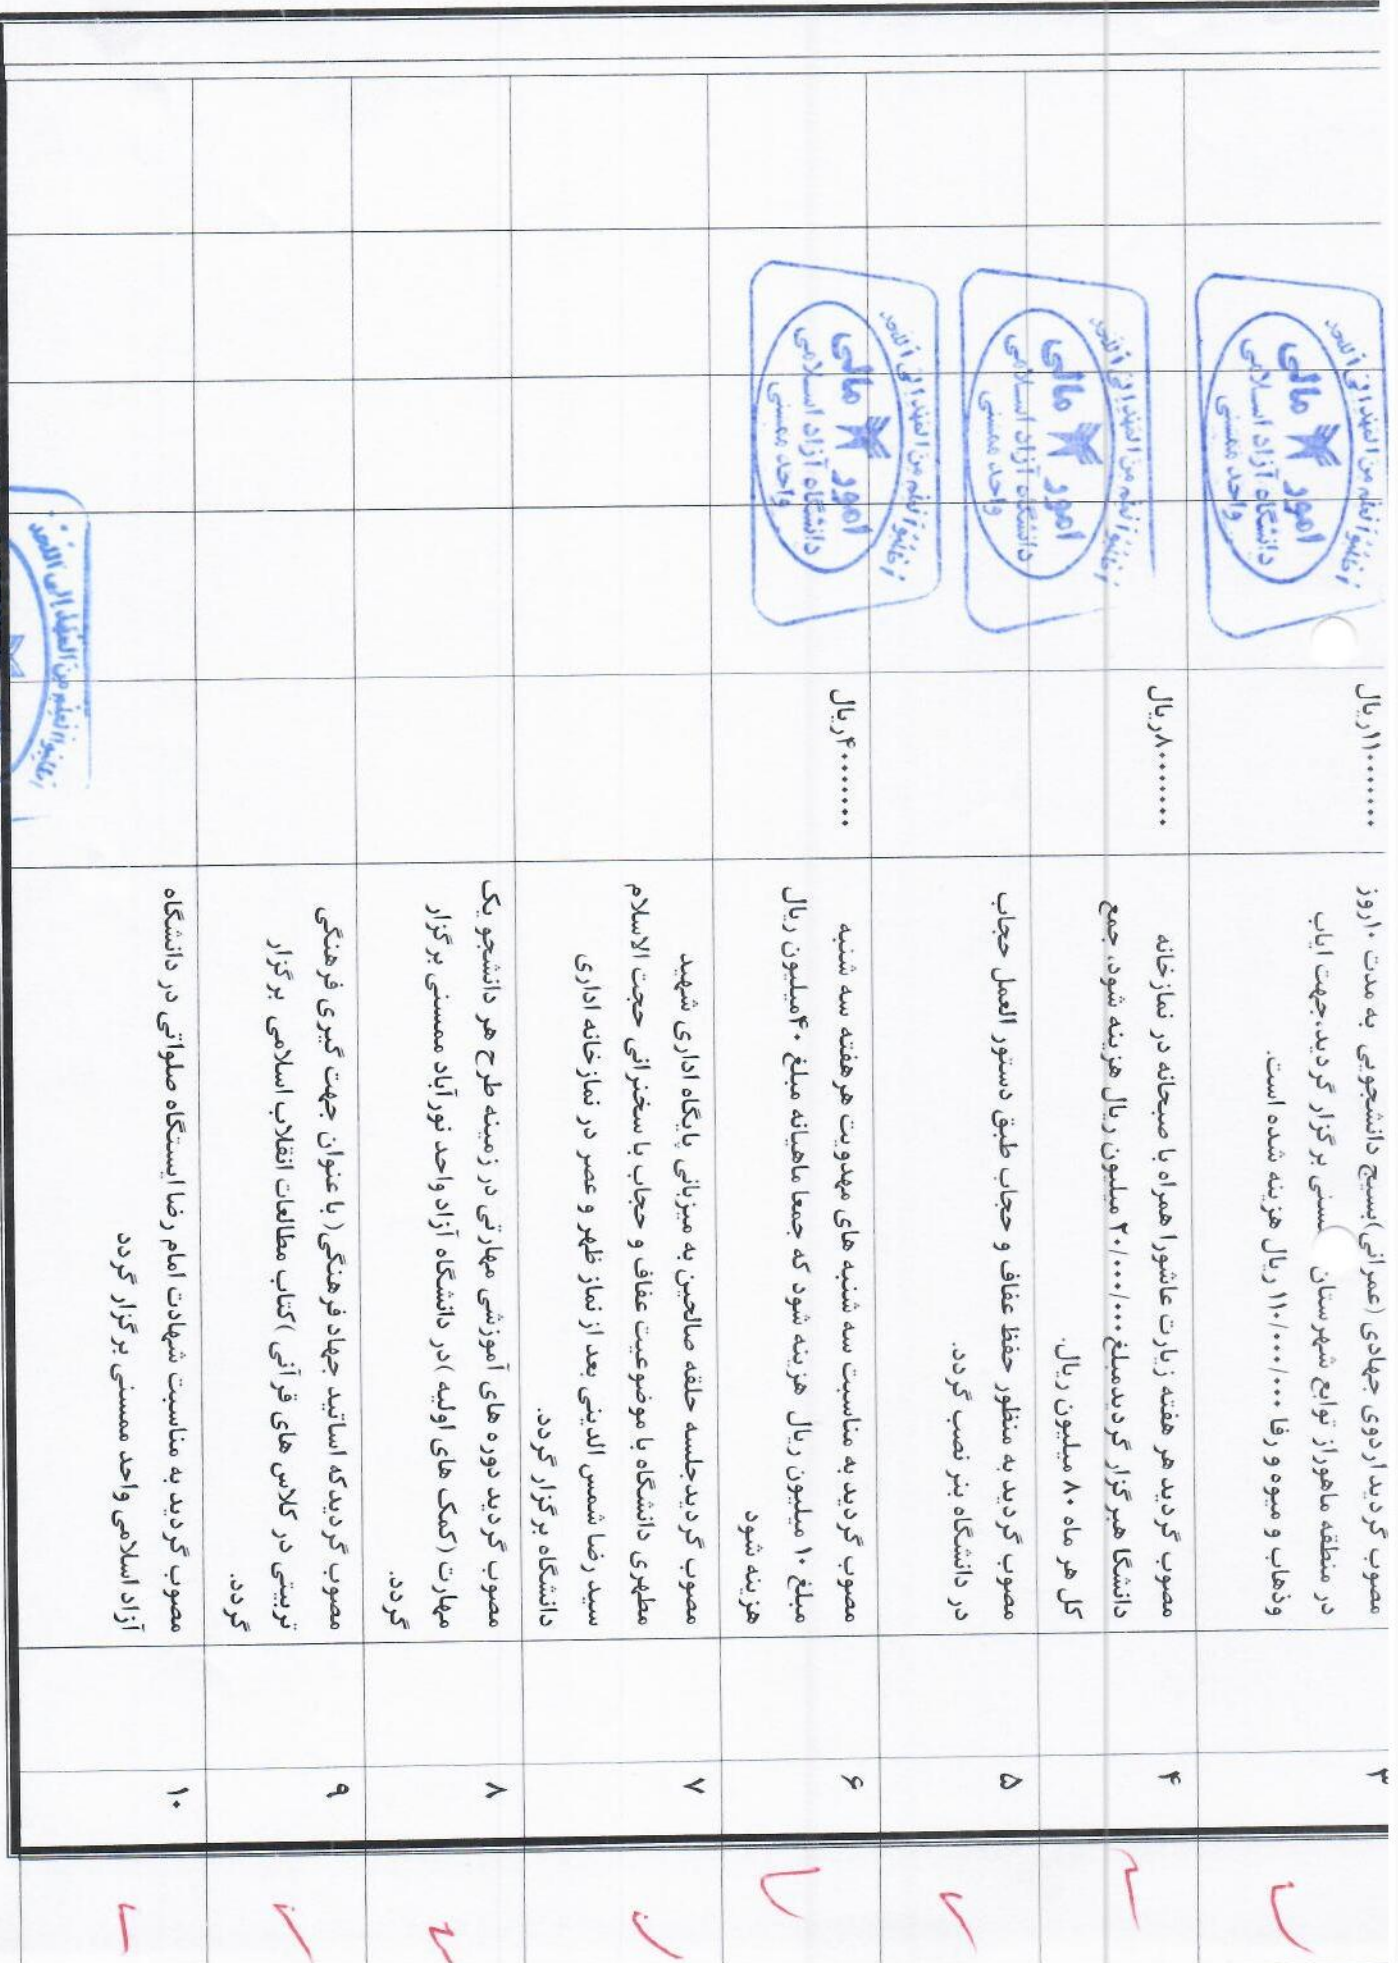 ۳
مصوب گردید اردوی جهادی (عمرانی)بسیج دانشجویی به مدت ۱۰روز
در منطقه ماهوراز توابع شهرستان سنی برگزار گردید،جهت ایاب
وذهاب و میوه و رفا ۱۱۰/۰۰۰/۰۰۰ ریال هزینه شده است.
۱۱۰۰۰۰۰۰۰ریال
و قاتلهم من المهد الی اللحد
امور مالی
دانشگاه آزاد اسلامی
واحد ممسنی
۴
مصوب گردید هر هفته زیارت عاشورا همراه با صبحانه در نمازخانه
دانشگا هبرگزار گردیدمبلغ ۲۰/۰۰۰/۰۰۰ میلیون ریال هزینه شود، جمع
کل هر ماه ۸۰ میلیون ریال.
۸۰۰۰۰۰۰۰ریال
امور مالی
دانشگاه آزاد اسلامی
واحد ممسنی
۵
مصوب گردید به منظور حفظ عفاف و حجاب طبق دستور العمل حجاب
در دانشگاه بنر نصب گردد.
۶
مصوب گردید به مناسبت سه شنبه های مهدویت هرهفته سه شنبه
مبلغ ۱۰ میلیون ریال هزینه شود که جمعا ماهیانه مبلغ ۴۰میلیون ریال
هزینه شود
۴۰۰۰۰۰۰۰ریال
امور مالی
دانشگاه آزاد اسلامی
واحد ممسنی
۷
مصوب گردیدجلسه حلقه صالحین به میزبانی پایگاه اداری شهید
مطهری دانشگاه با موضوعیت عفاف و حجاب با سخنرانی حجت الاسلام
سید رضا شمس الدینی بعد از نماز ظهر و عصر در نمازخانه اداری
دانشگاه برگزار گردد.
۸
مصوب گردید دوره های آموزشی مهارتی در زمینه طرح هر دانشجو یک
مهارت (کمک های اولیه )در دانشگاه آزاد واحد نورآباد ممسنی برگزار
گردد.
۹
مصوب گردیدکه اساتید جهاد فرهنگی( با عنوان جهت گیری فرهنگی
تربیتی در کلاس های قرآنی )کتاب مطالعات انقلاب اسلامی برگزار
گردد.
۱۰
مصوب گردید به مناسبت شهادت امام رضا ایستگاه صلواتی در دانشگاه
آزاد اسلامی واحد ممسنی برگزار گردد